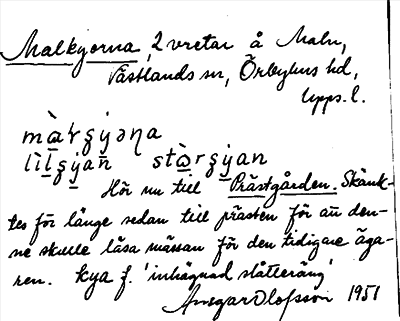 Malkyorna, 2 vretar å Malm,
Västlands sn, Örbyhus hd,
Upps. l.
mà̱rʂyəɳa
lìḻʂyan stà̱rʂyan
Hör nu till Prästgården. Skänk-
tes för länge sedan till prästen för att den-
ne skulle läsa mässan för den tidigare äga-
ren. kya f. 'inhägnad slåtteräng'
Ansgar Olofsson 1951